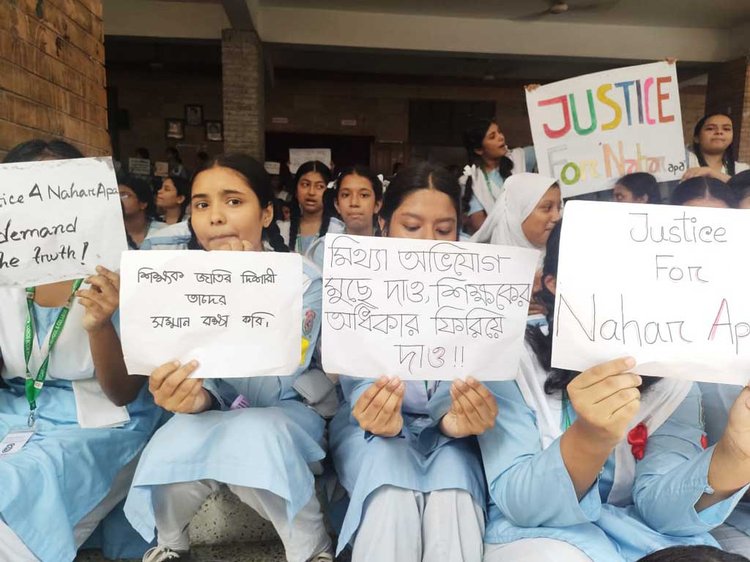 Justice 4 Nahar Apa
demand
the truth!
শিক্ষক জাতির দিশারী
তাদের
সম্মান রক্ষা করি।
মিথ্যা অভিযোগ
মুছে দাও, শিক্ষকের
অধিকার ফিরিয়ে
দাও!!
JUSTICE
For Nahar apa
Justice
For
Nahar Apa